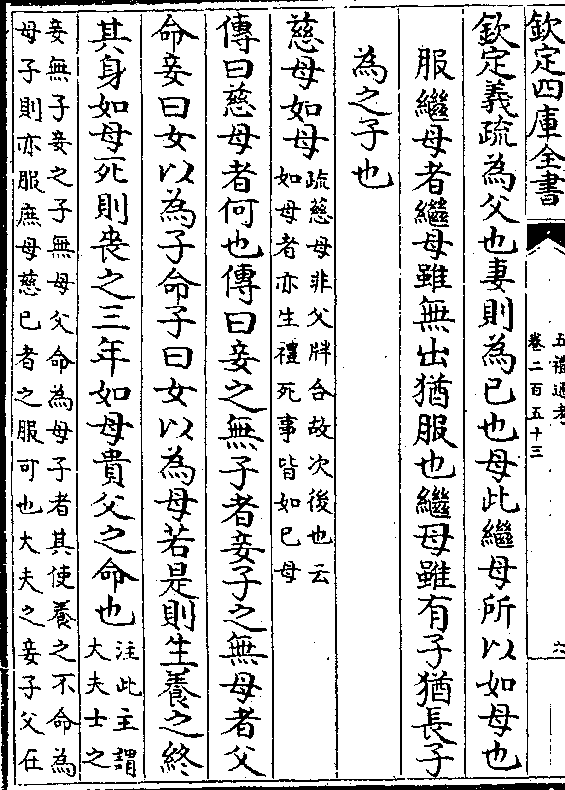 欽定四庫全書
五禮通考
卷二百五十三
六
欽定義疏為父也妻則為已也母此繼母所以如母也
服繼母者繼母雖無出猶服也繼母雖有子猶長子
為之子也
慈母如母
疏慈母非父牉合故次後也云
如母者亦生禮死事皆如已母
傳曰慈母者何也傳曰妾之無子者妾子之無母者父
命妾曰女以為子命子曰女以為母若是則生養之終
其身如母死則喪之三年如母貴父之命也
注此主謂
大夫士之
妾無子妾之子無母父命為母子者其使養之不命為
母子則亦服庶母慈已者之服可也大夫之妾子父在